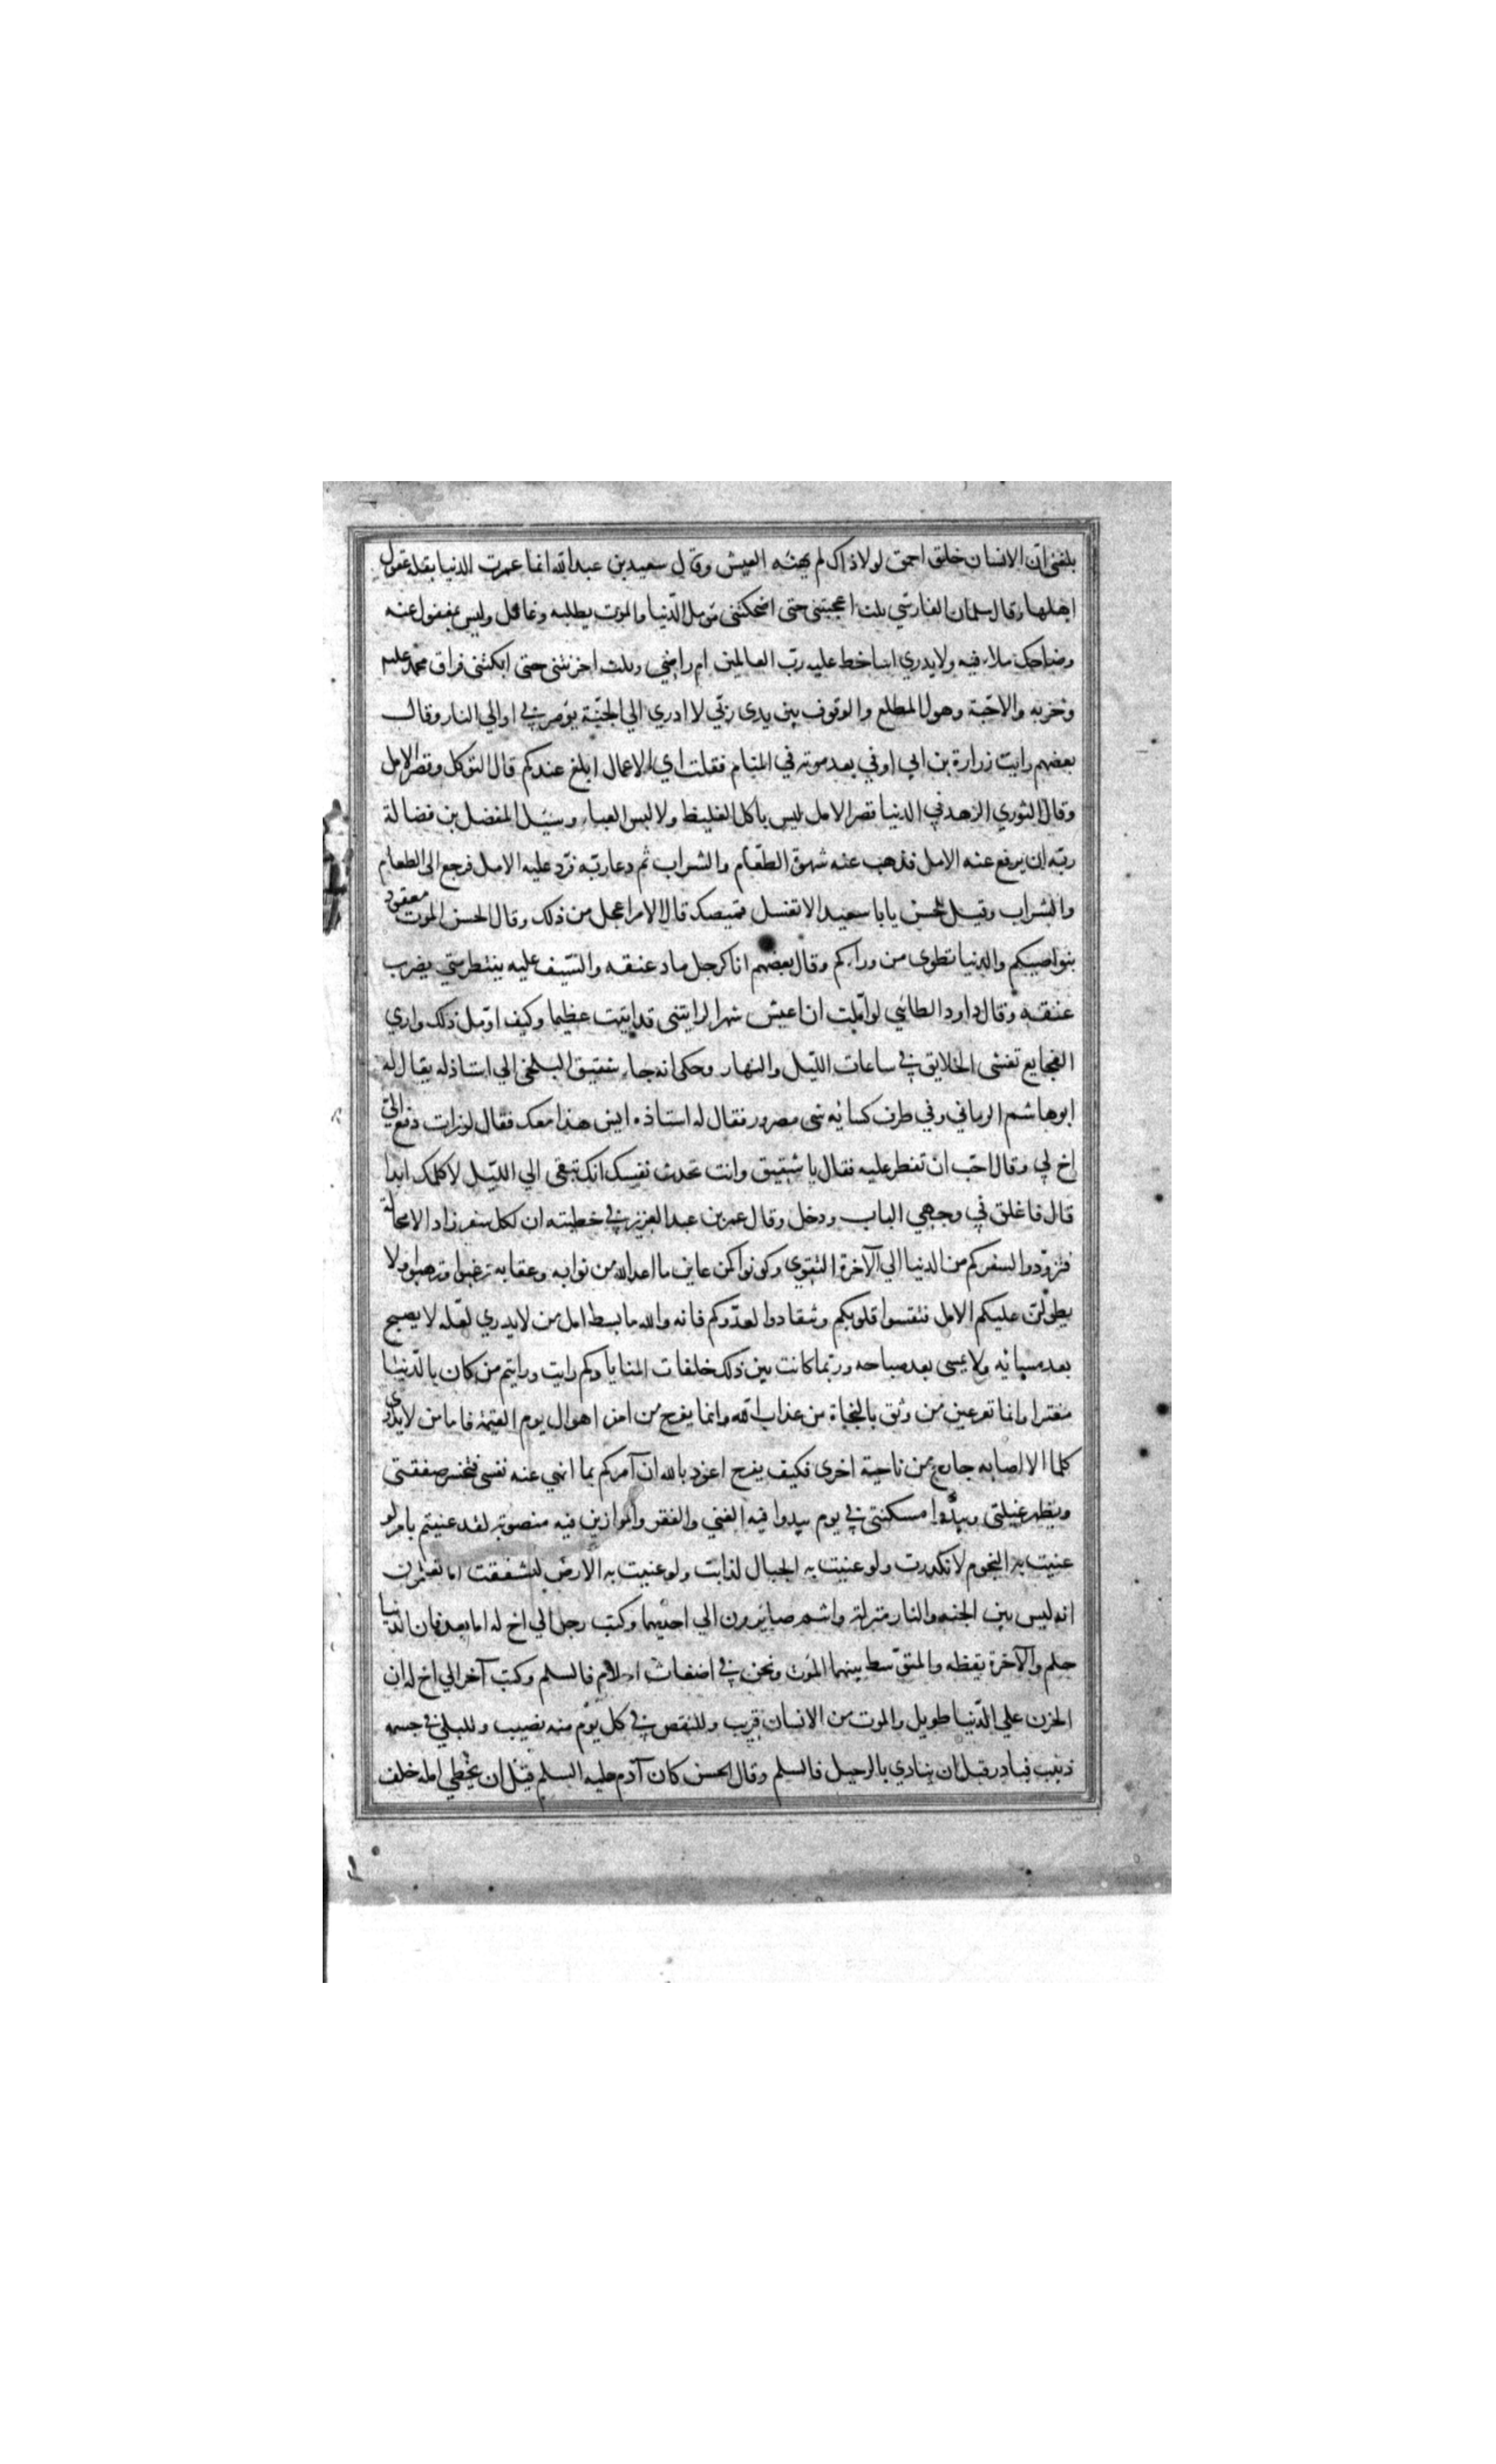 بلغني ان الانسان خلق احمق لولا ذاك لم يهنه العيش وقال سعيد بن عبد الله انما عمرت الدنيا بقلة عقول
اهلها وقال سلمان الفارسي ثلث اعجبتني حتى اضحكتني مؤمل الدنيا والموت يطلبه وغافل وليس بمغفول عنه
وضاحك ملاء فيه ولا يدري اساخط عليه رب العالمين ام راضي وثلث احزنتني حتى ابكتني فراق محمد عليه
وحزبه والاحبة وهول المطلع والوقوف بين يدى ربي لا ادري الي الجنة يؤمر بي او الي النار وقال
بعضهم رايت زرارة بن ابي اوفي بعد موته في المنام فقلت اي الاعمال ابلغ عندكم قال التوكل وقصر الامل
وقال الثوري الزهد في الدنيا قصر الامل ليس باكل الغليظ ولا لبس العباء وسئل المفضل بن فضالة
ربه ان يرفع عنه الامل فذهب عنه شهوة الطعام والشراب ثم دعا ربه فرد عليه الامل فرجع الى الطعام
والشراب وقيل للحسن يابا سعيد الا تغسل قميصك قال الامر اعجل من ذلك وقال الحسن الموت معقود
بنواصيكم والدنيا تطوى من وراءكم وقال بعضهم انا كرجل ماد عنقه والسيف عليه ينتظر متي يضرب
عنقه وقال داود الطائي لو املت ان اعيش شهرا لرايتني قد اتيت عظيما وكيف اؤمل ذلك واري
الفجايع تغشى الخلايق في ساعات الليل والنهار وحكى انه جاء شقيق البلخي الي استاذ له يقال له
ابو هاشم الرماني وفي طرف كسائه شى مصرور فقال له استاذه ايش هذا معك فقال لوزات دفع الي
اخ لي وقال احب ان تفطر عليه فقال يا شقيق وانت تحدث نفسك انك تبقى الي الليل لا كلمتك ابدا
قال فاغلق في وجهي الباب ودخل وقال عمر بن عبد العزيز في خطبته ان لكل سفر زادا لا محالة
فتزودوا لسفركم من الدنيا الي الآخرة التقوى وكونوا كمن عاين ما اعد الله من ثوابه وعقابه ترغبوا وترهبوا ولا
يطولن عليكم الامل فتقسوا قلوبكم وتنقادوا لعدوكم فانه والله ما بسط امل من لا يدري لعله لا يصبح
بعد مسائه ولا يمسى بعد صباحه وربما كانت بين ذلك خلفات المنايا وكم رايت ورايتم من كان بالدنيا
مغترا وانما تقر عين من وثق بالنجاة من عذاب الله وانما يفرح من امن اهوال يوم القيمة فاما من لا يداوى
كلما الا اصابه جارح من ناحية اخرى فكيف يفرح اعوذ بالله ان آمركم بما انهي عنه نفسى فتخسر صفقتى
ويظهر عيلتى ويبدوا مسكنتى في يوم يبدوا فيه الغني والفقر والموازين فيه منصوبة لقد عنيتم بامر لو
عنيت به النجوم لانكدرت ولو عنيت به الجبال لذابت ولو عنيت به الارض لتشققت اما تعلمون
انه ليس بين الجنة والنار منزلة وانتم صائرون الي احديهما وكتب رجل الي اخ له اما بعد فان الدنيا
حلم والآخرة يقظه والمتوسط بينهما الموت ونحن في اضغاث احلام فالسلم وكتب آخر الي اخ له ان
الحزن علي الدنيا طويل والموت من الانسان قريب وللنقص في كل يوم منه نصيب وللبلي في جسمه
دبيب فبادر قبل ان ينادي بالرحيل فالسلم وقال الحسن كان آدم عليه السلم قبل ان يخطي امله خلف